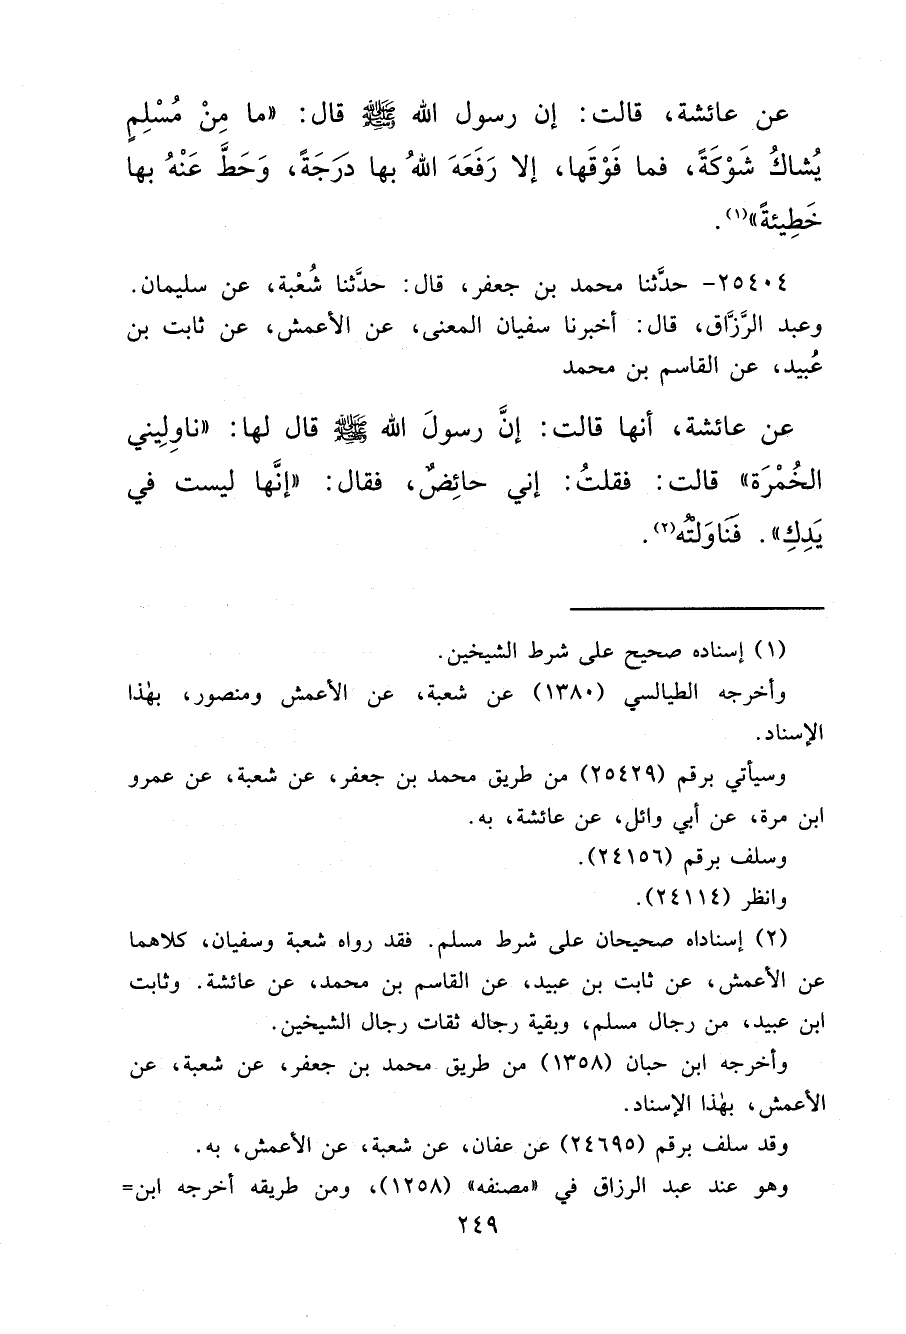 عن عائشة، قالت: إن رسول الله ﷺ قال: «ما مِنْ مُسْلِمٍ
يُشاكُ شَوْكَةً، فما فَوْقَها، إلا رَفَعَهَ اللهُ بها دَرَجَةً، وَحَطَّ عَنْهُ بها
خَطِيئةً»(١).
٢٥٤٠٤- حدَّثنا محمد بن جعفر، قال: حدَّثنا شُعْبة، عن سليمان.
وعبد الرَّزَّاق، قال: أخبرنا سفيان المعنى، عن الأعمش، عن ثابت بن
عُبيد، عن القاسم بن محمد
عن عائشة، أنها قالت: إنَّ رسولَ الله ﷺ قال لها: «ناوِلِيني
الخُمْرَة» قالت: فقلتُ: إني حائِضٌ، فقال: «إنَّها ليست في
يَدِكِ». فَنَاوَلتُه(٢).
(١) إسناده صحيح على شرط الشيخين.
وأخرجه الطيالسي (١٣٨٠) عن شعبة، عن الأعمش ومنصور، بهٰذا
الإسناد.
وسيأتي برقم (٢٥٤٢٩) من طريق محمد بن جعفر، عن شعبة، عن عمرو
ابن مرة، عن أبي وائل، عن عائشة، به.
وسلف برقم (٢٤١٥٦).
وانظر (٢٤١١٤).
(٢) إسناداه صحيحان على شرط مسلم. فقد رواه شعبة وسفيان، كلاهما
عن الأعمش، عن ثابت بن عبيد، عن القاسم بن محمد، عن عائشة. وثابت
ابن عبيد، من رجال مسلم، وبقية رجاله ثقات رجال الشيخين.
وأخرجه ابن حبان (١٣٥٨) من طريق محمد بن جعفر، عن شعبة، عن
الأعمش، بهٰذا الإسناد.
وقد سلف برقم (٢٤٦٩٥) عن عفان، عن شعبة، عن الأعمش، به.
وهو عند عبد الرزاق في «مصنفه» (١٢٥٨)، ومن طريقه أخرجه ابن=
٢٤٩